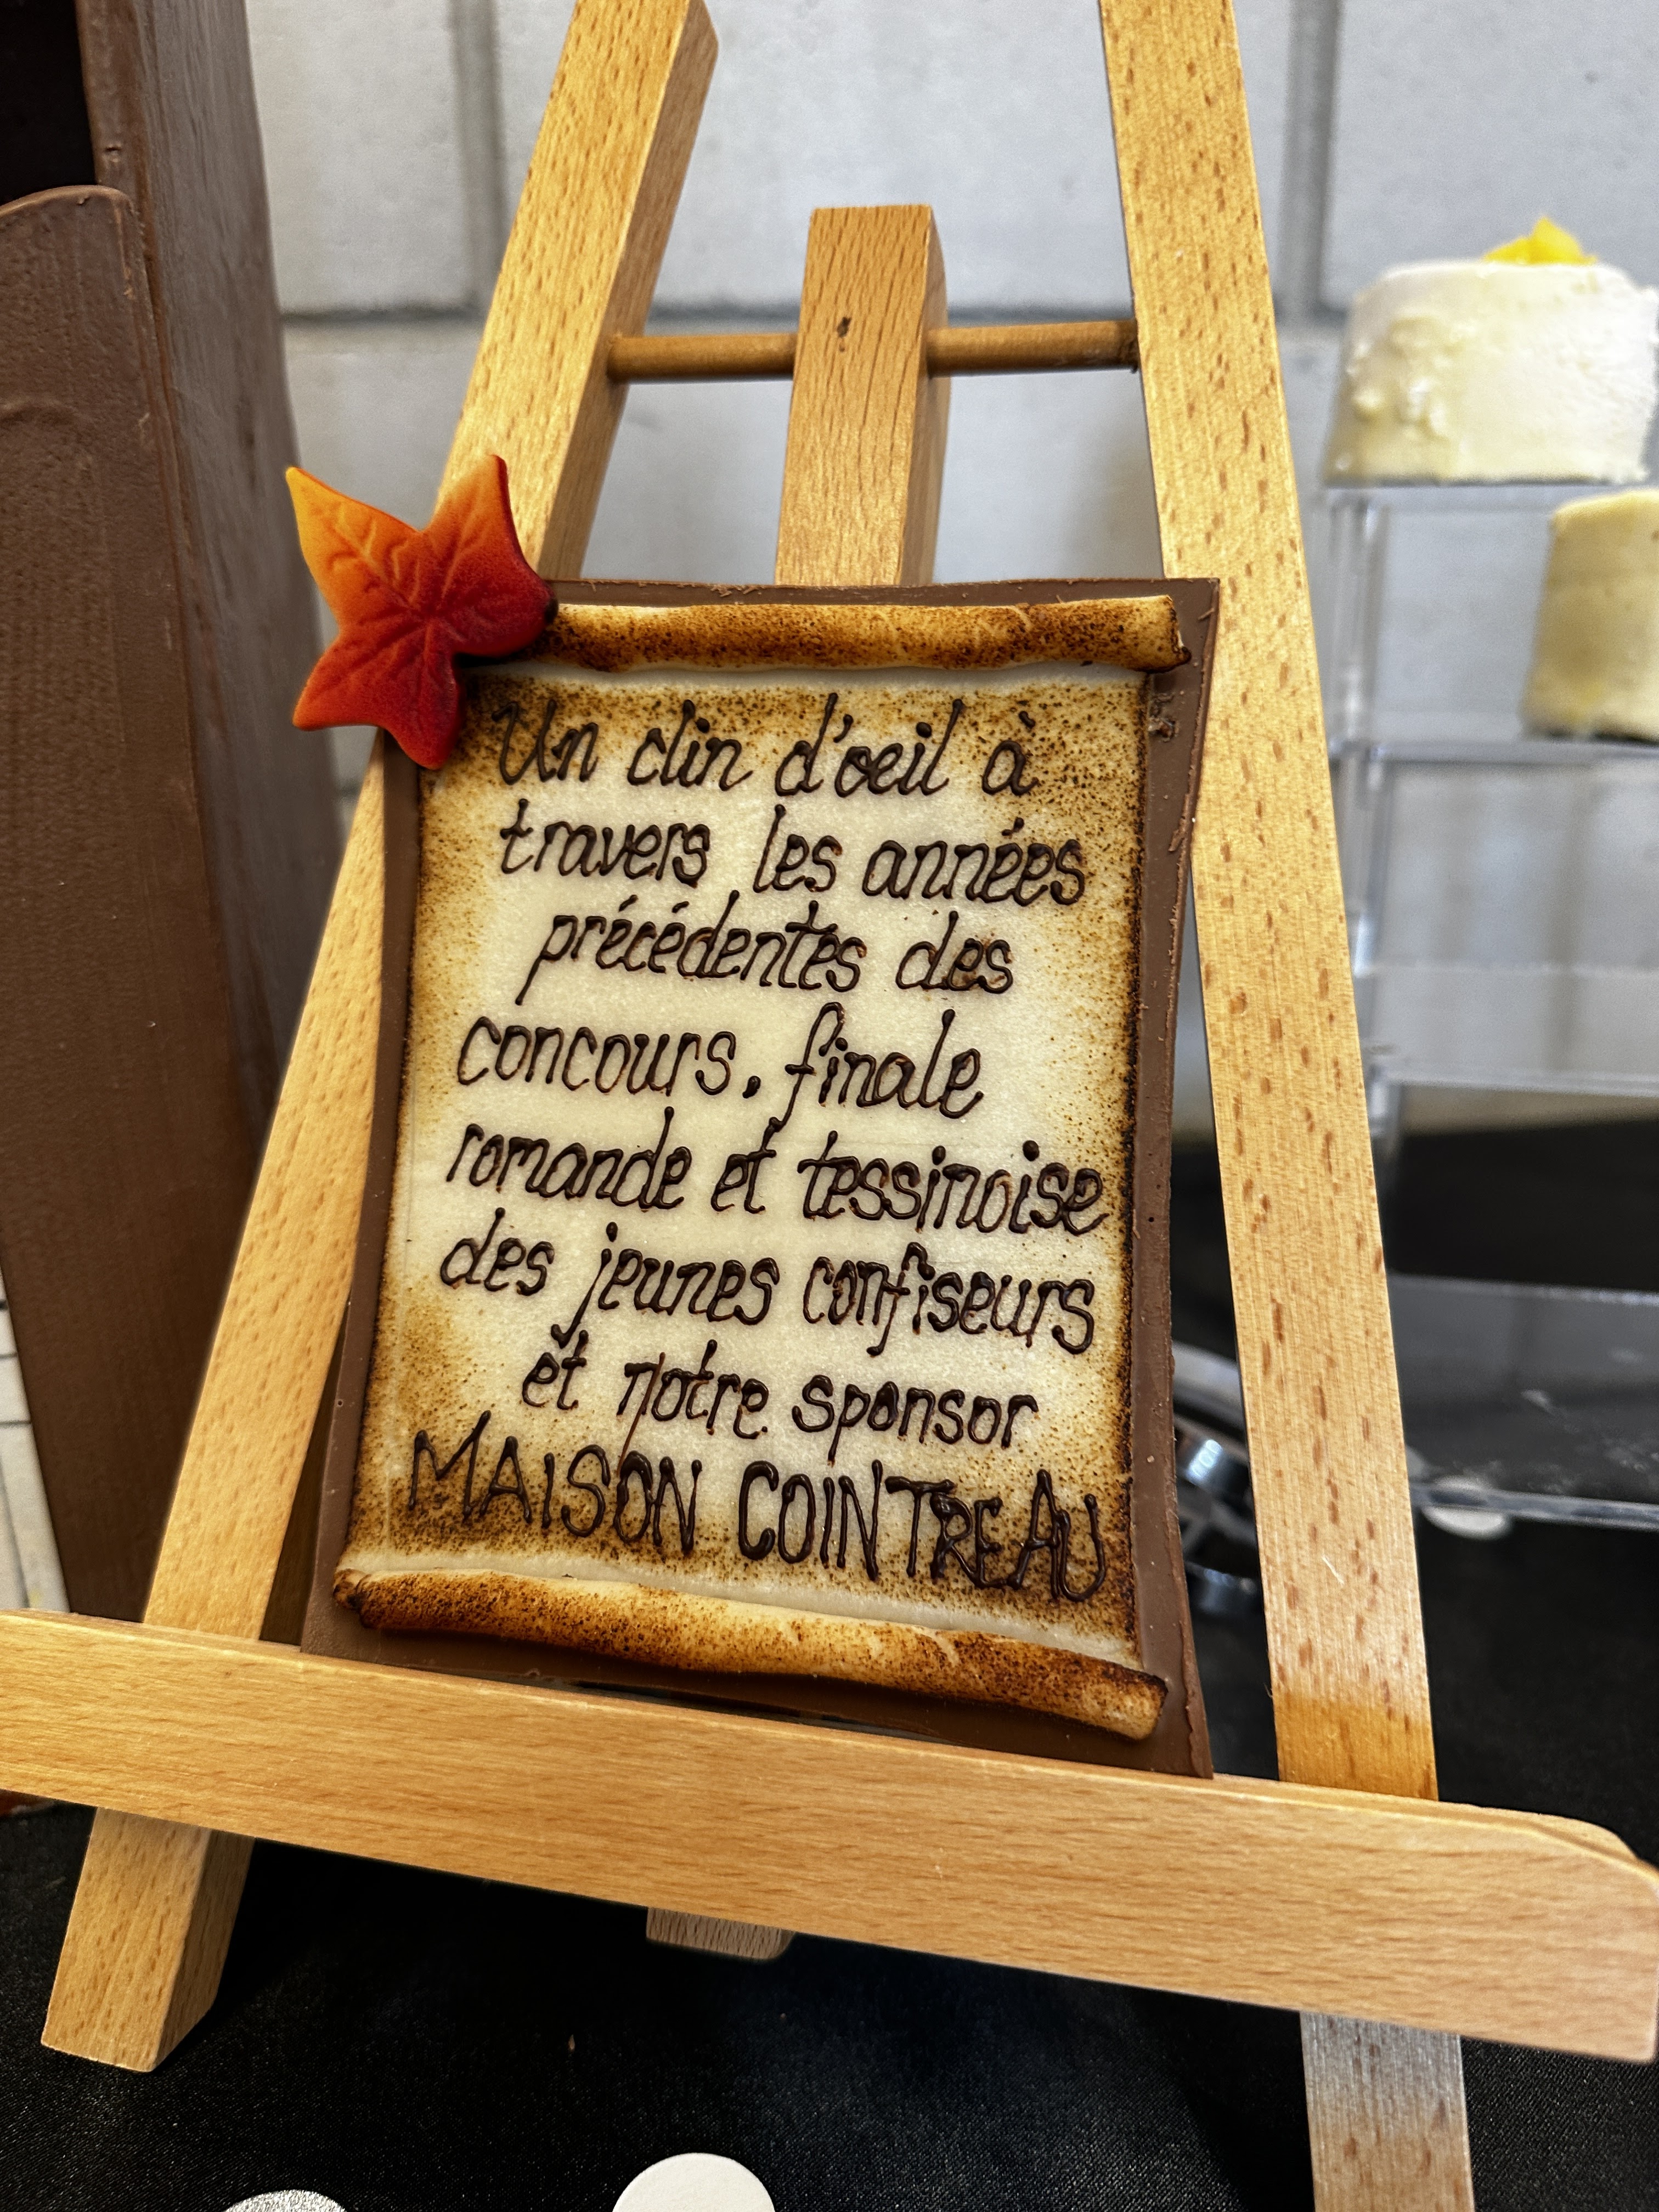 Un clin d'oeil à
travers les années
précédentes des
concours, finale
romande et tessinoise
des jeunes confiseurs
et notre sponsor
MAISON COINTREAU